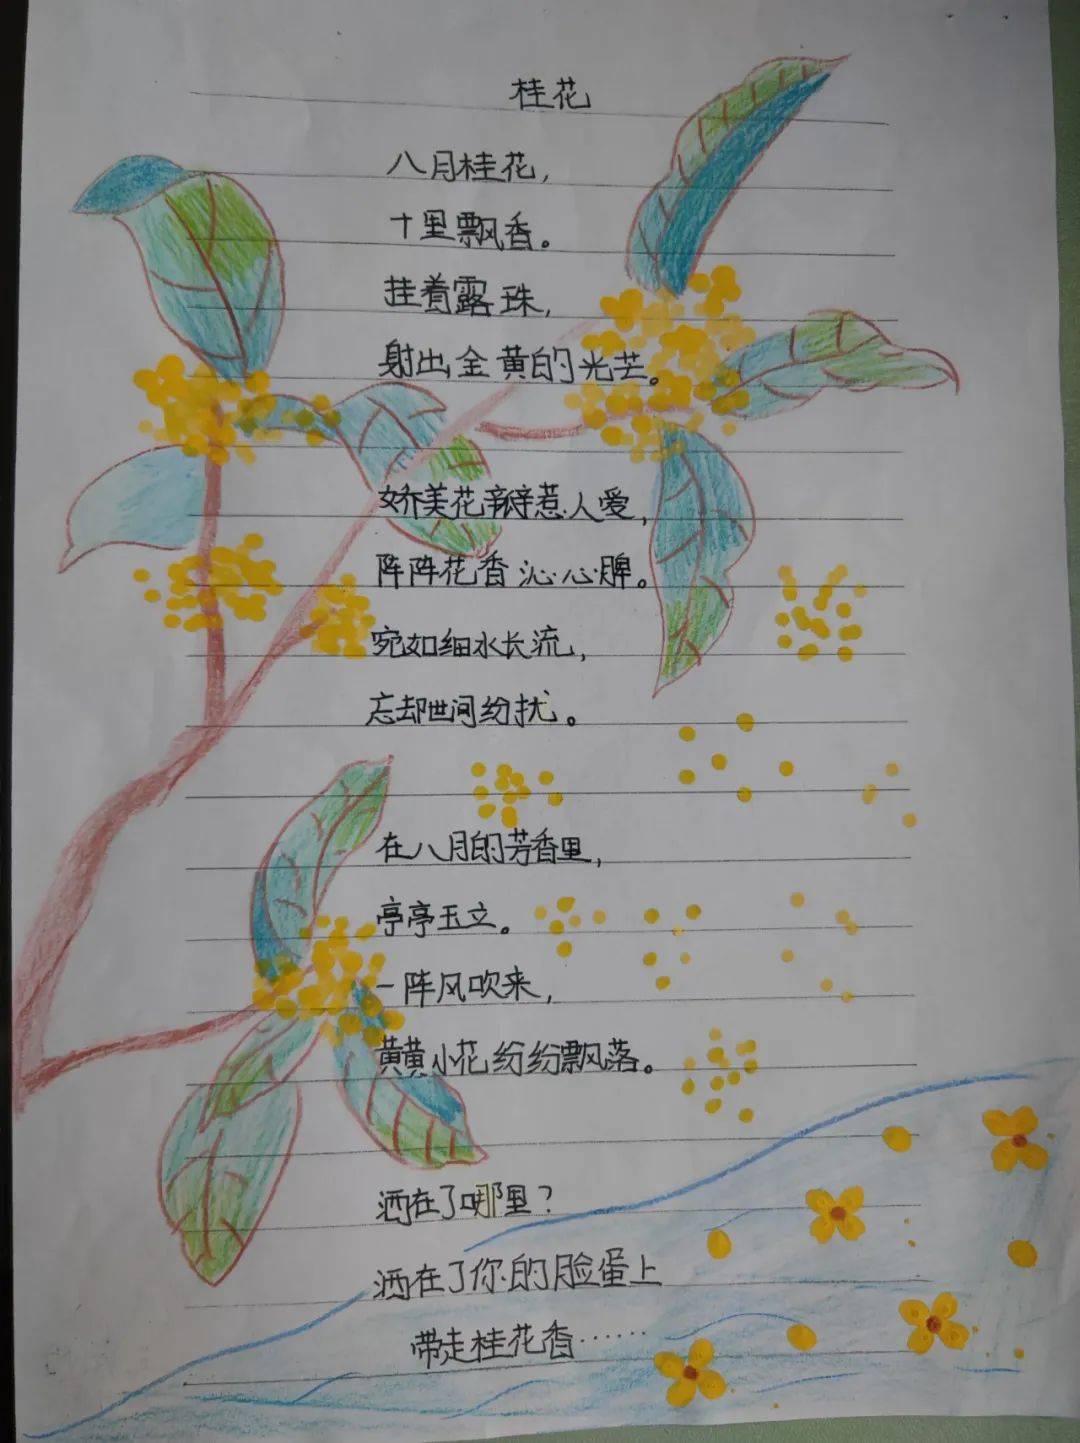 桂花
八月桂花，
十里飘香。
挂着露珠，
射出金黄的光芒。
娇美花瓣惹人爱，
阵阵花香沁心脾。
宛如细水长流，
忘却世间纷扰。
在八月的芳香里，
亭亭玉立。
一阵风吹来，
黄黄小花纷纷飘落。
洒在了哪里？
洒在了你的脸蛋上
带走桂花香……